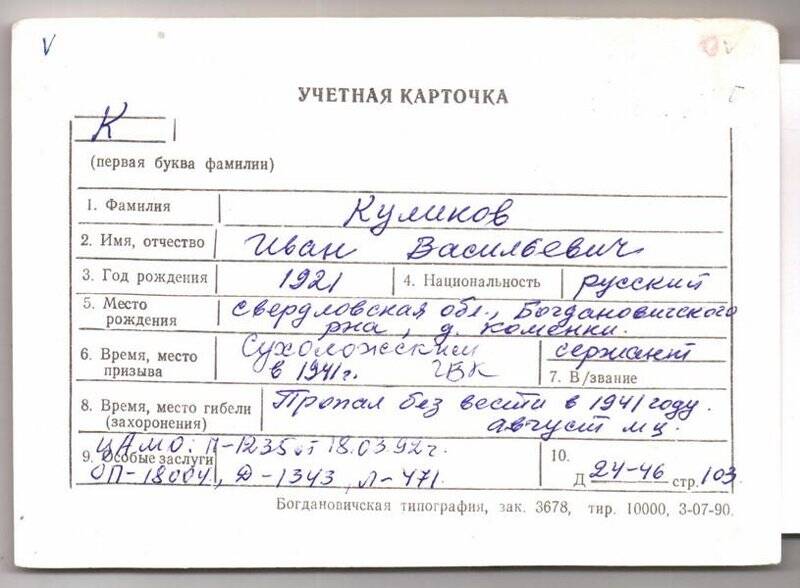 V
УЧЕТНАЯ КАРТОЧКА
К
(первая буква фамилии)
1. Фамилия Куликов
2. Имя, отчество Иван Васильевич
3. Год рождения 1921 4. Национальность русский
5. Место рождения Свердловская обл., Богдановичского
рна, д. Коменки.
6. Время, место призыва Сухоложский ГВК
в 1941г.
сержант
7. В/звание
8. Время, место гибели (захоронения) Пропал без вести в 1941 году.
август мц.
ЦАМО: П-1235 от 18.03.92г.
9. Особые заслуги
ОП-18004, Д-1343, Л-471.
10.
Д 24-46 стр. 103
Богдановичская типография, зак. 3678, тир. 10000, 3-07-90.